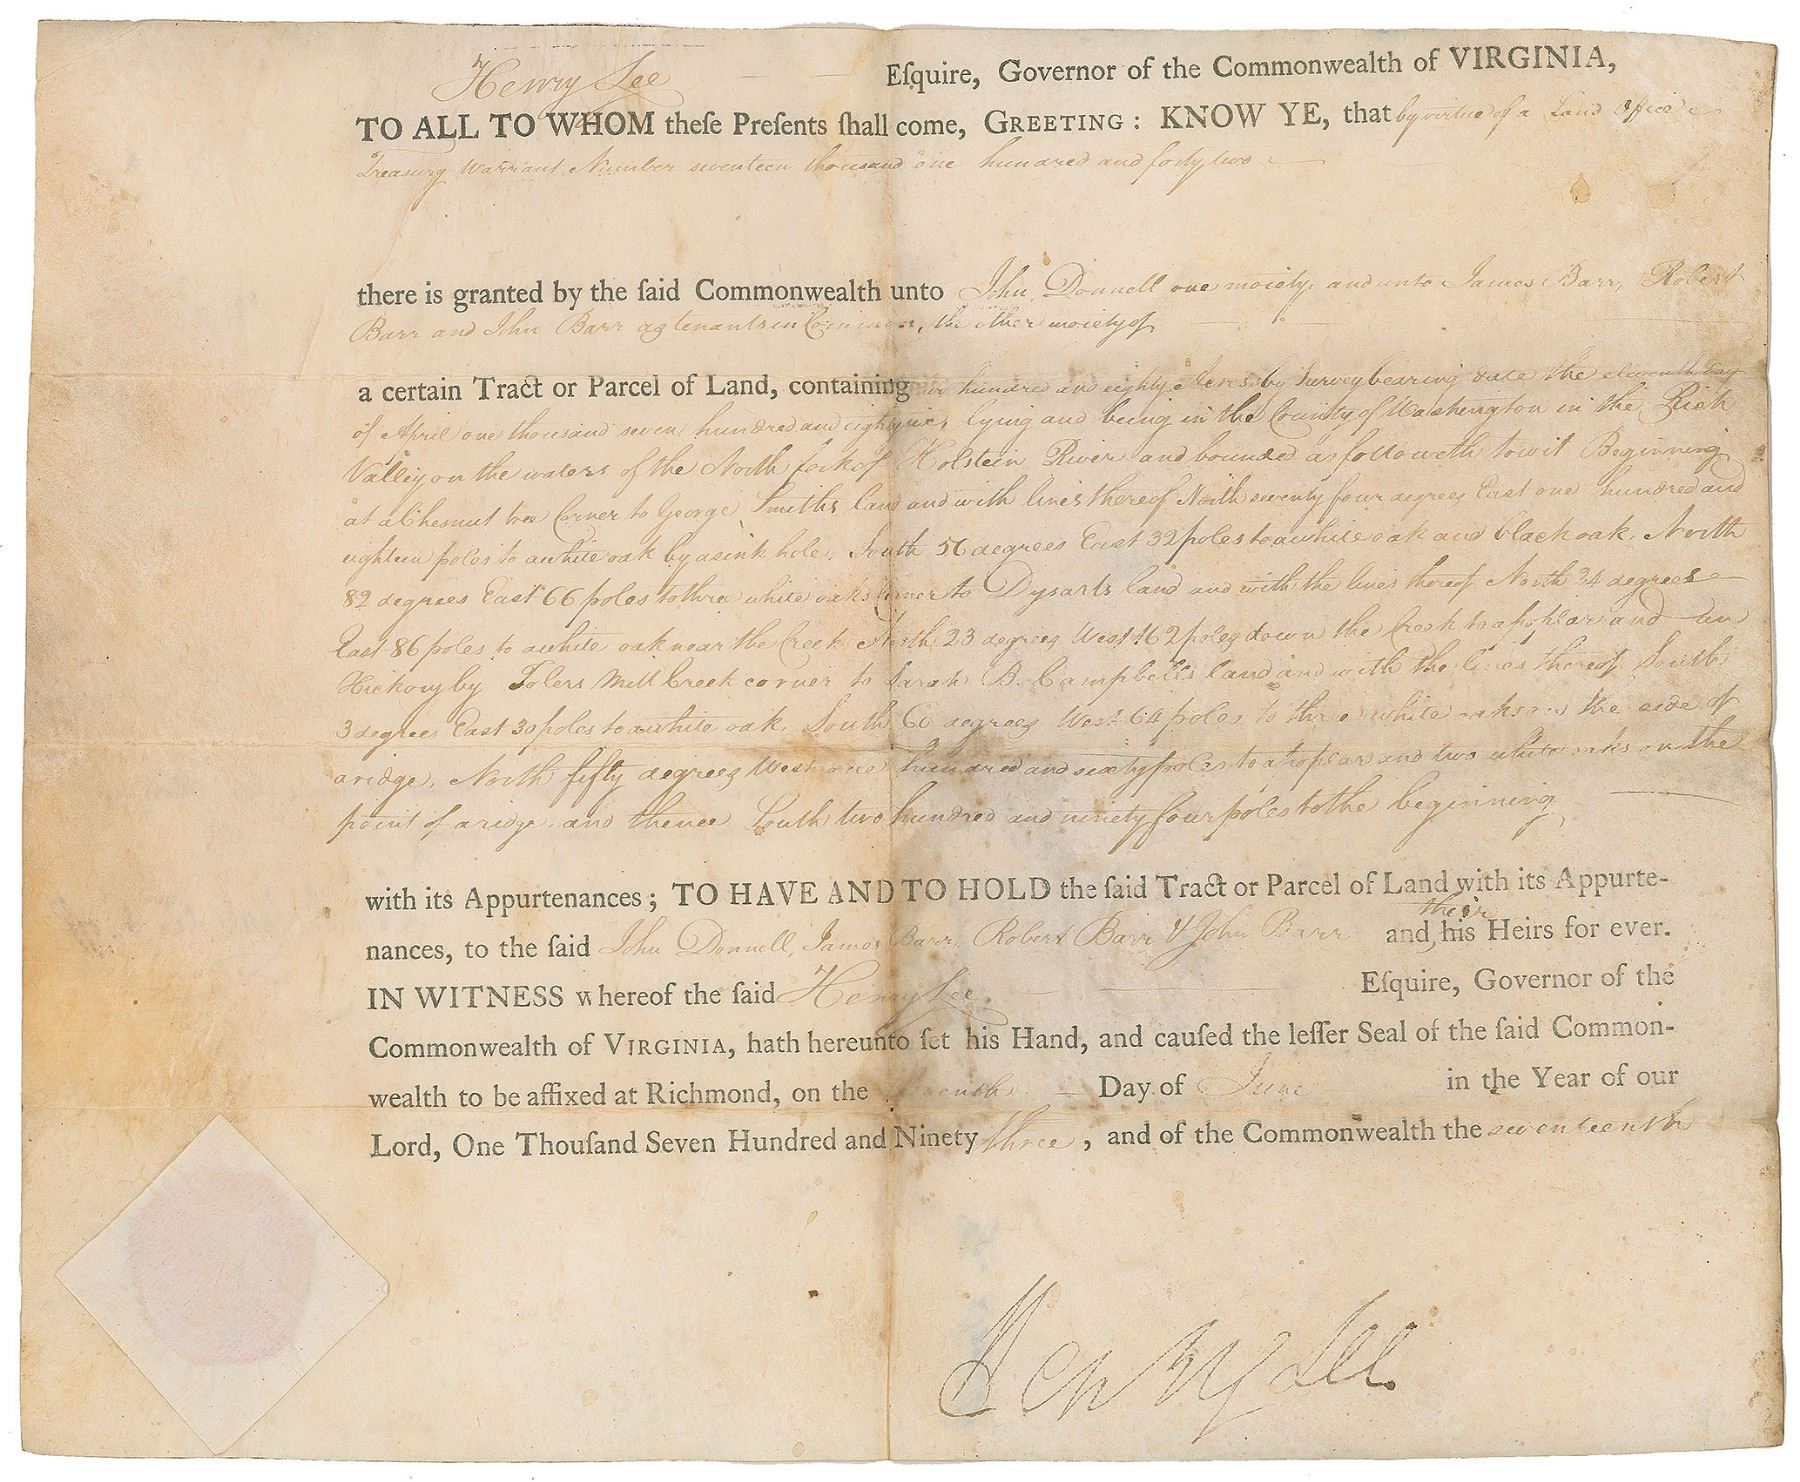 Henry Lee Eſquire, Governor of the Commonwealth of VIRGINIA,
TO ALL TO WHOM theſe Preſents ſhall come, GREETING: KNOW YE, that by virtue of a Land Office
Treasury Warrant Number seventeen thousand one hundred and forty two
there is granted by the ſaid Commonwealth unto John Donnell one moiety and unto James Barr, Robert
Barr and John Barr as tenants in Common, the other moiety of
a certain Tract or Parcel of Land, containing hundred and eighty Acres by Survey bearing date the eleventh day
of April one thousand seven hundred and lying and being in the County of Washington in the Rich
Valley on the waters of the North fork of Holstein River and bounded as followeth to wit Beginning
at a Chesnut tree Corner to George Smiths land and with lines thereof North seventy four degrees East one hundred and
eighteen poles to a white oak by a sink hole, South 56 degrees East 32 poles to a white oak and black oak, North
82 degrees East 66 poles to three white oaks Corner to Dysarts land and with the lines thereof North 24 degrees
East 86 poles to a white oak near the Creek North 23 degrees West 162 poles down the Creek to a poplar and an
Hickory by Tolers Mill Creek corner to Sarah B. Campbells land and with the lines thereof South
3 degrees East 30 poles to a white oak, South 60 degrees West 64 poles to three white oaks on the side of
a ridge, North fifty degrees West one hundred and sixty poles to a poplar and two white oaks on the
point of a ridge, and thence South two hundred and ninety four poles to the beginning
with its Appurtenances; TO HAVE AND TO HOLD the ſaid Tract or Parcel of Land with its Appurte-
nances, to the ſaid John Donnell, James Barr, Robert Barr & John Barr and their his Heirs for ever.
IN WITNESS whereof the ſaid Henry Lee Eſquire, Governor of the
Commonwealth of VIRGINIA, hath hereunto ſet his Hand, and cauſed the leſſer Seal of the ſaid Common-
wealth to be affixed at Richmond, on the Day of June in the Year of our
Lord, One Thouſand Seven Hundred and Ninety three, and of the Commonwealth the seventeenth
Henry Lee